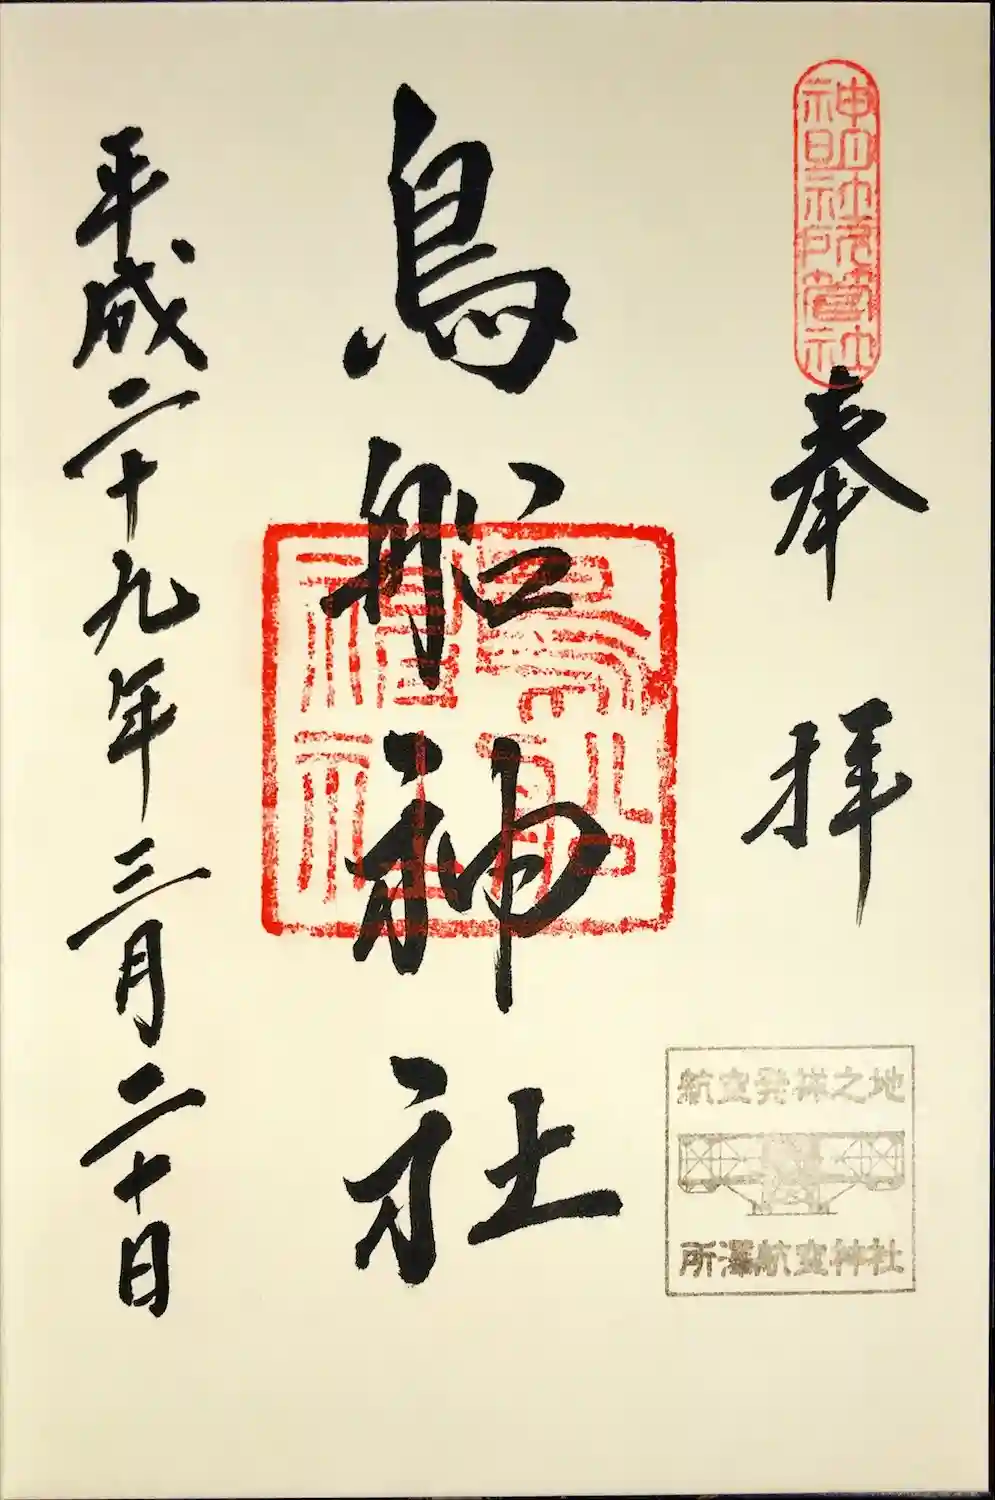 神明社所管社
奉拝
鳥船神社
鳥船神社
平成二十九年三月二十日
航空発祥之地
所澤航空神社